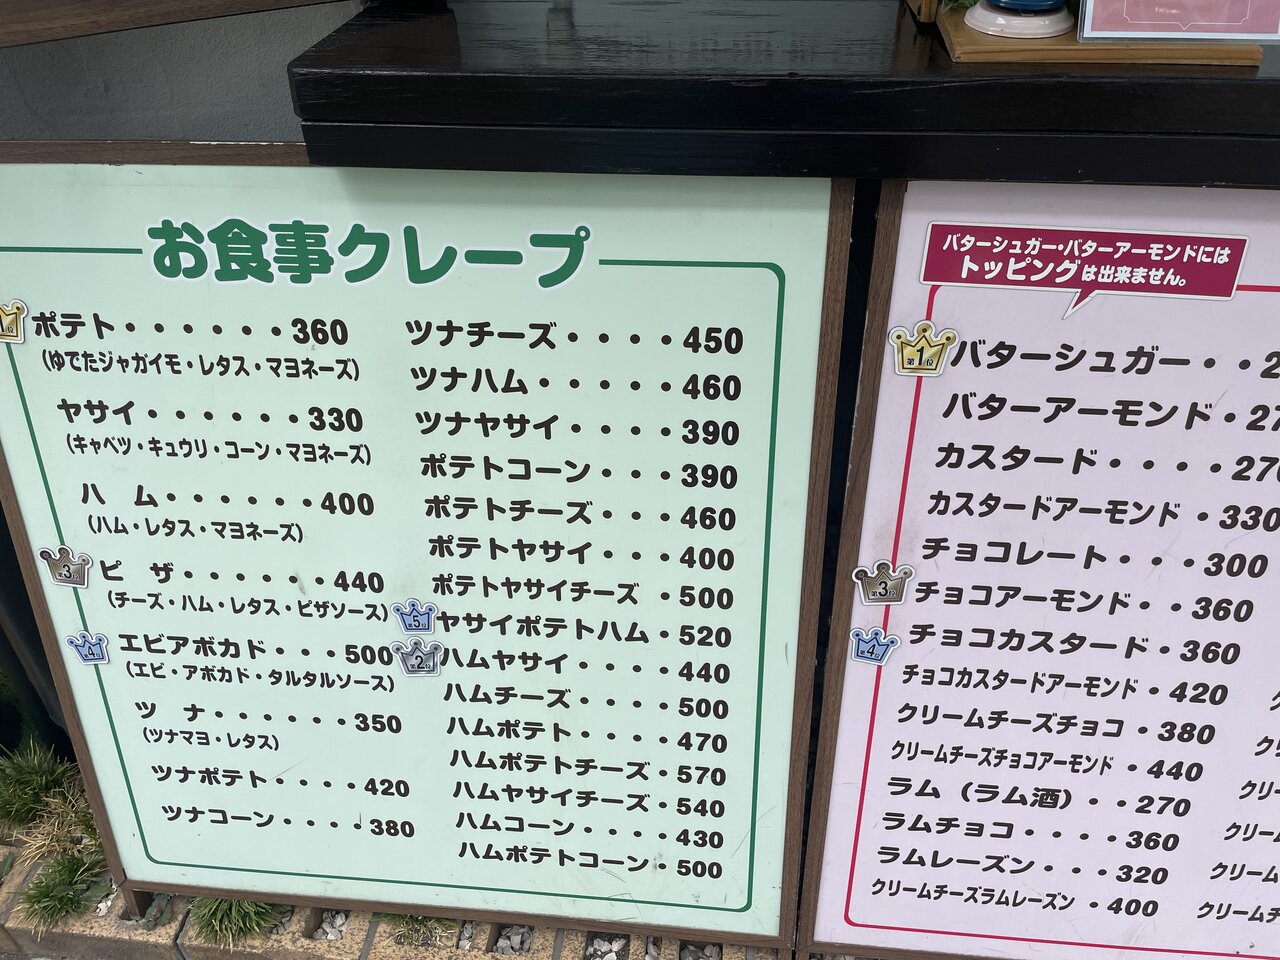 お食事クレープ
1位
ポテト・・・・・・360
(ゆでたジャガイモ・レタス・マヨネーズ)
ヤサイ・・・・・・330
(キャベツ・キュウリ・コーン・マヨネーズ)
ハ ム・・・・・・400
(ハム・レタス・マヨネーズ)
第3位
ピ ザ・・・・・・440
(チーズ・ハム・レタス・ピザソース)
第4位
エビアボカド・・・500
(エビ・アボカド・タルタルソース)
ツ ナ・・・・・・350
(ツナマヨ・レタス)
ツナポテト・・・・420
ツナコーン・・・・380
ツナチーズ・・・・450
ツナハム・・・・・460
ツナヤサイ・・・・390
ポテトコーン・・・390
ポテトチーズ・・・460
ポテトヤサイ・・・400
ポテトヤサイチーズ・500
第5位
ヤサイポテトハム・520
第2位
ハムヤサイ・・・・440
ハムチーズ・・・・500
ハムポテト・・・・470
ハムポテトチーズ・570
ハムヤサイチーズ・540
ハムコーン・・・・430
ハムポテトコーン・500
バターシュガー・バターアーモンドには
トッピングは出来ません。
第1位
バターシュガー・・2
バターアーモンド・27
カスタード・・・・270
カスタードアーモンド・330
チョコレート・・・300
第3位
チョコアーモンド・・360
第4位
チョコカスタード・360
チョコカスタードアーモンド・420
クリームチーズチョコ・380
クリームチーズチョコアーモンド・440
ラム(ラム酒)・・270
ラムチョコ・・・・360
ラムレーズン・・・320
クリームチーズラムレーズン・400
ク
クリ
クリー
クリーム
クリーム
クリームチ